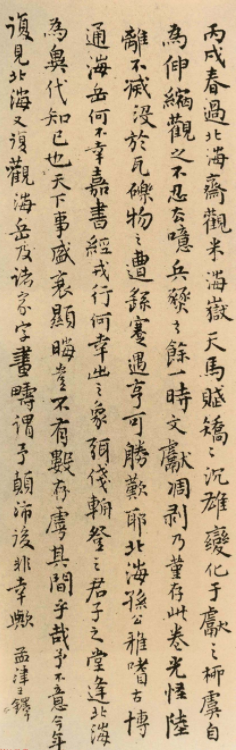 丙戌春過北海齋觀米海嶽天馬賦矯〻沉雄變化于獻之柳虞自
為伸縮觀之不忍去噫兵燹之餘一時文獻凋剥乃堇存此卷光怪陸
離不滅沒於瓦礫物之遭繇蹇遇亨可勝歎耶北海孫公雅嗜古博
通海岳何不幸嘉書經戎行何幸出之象弭俴輈登之君子之堂逢北海
為異代知己也天下事盛衰顯晦豈不有數存虖其間乎哉予不意今年
復見北海又復觀海岳及諸家字畫疇謂予顛沛後非幸歟 孟津王鐸